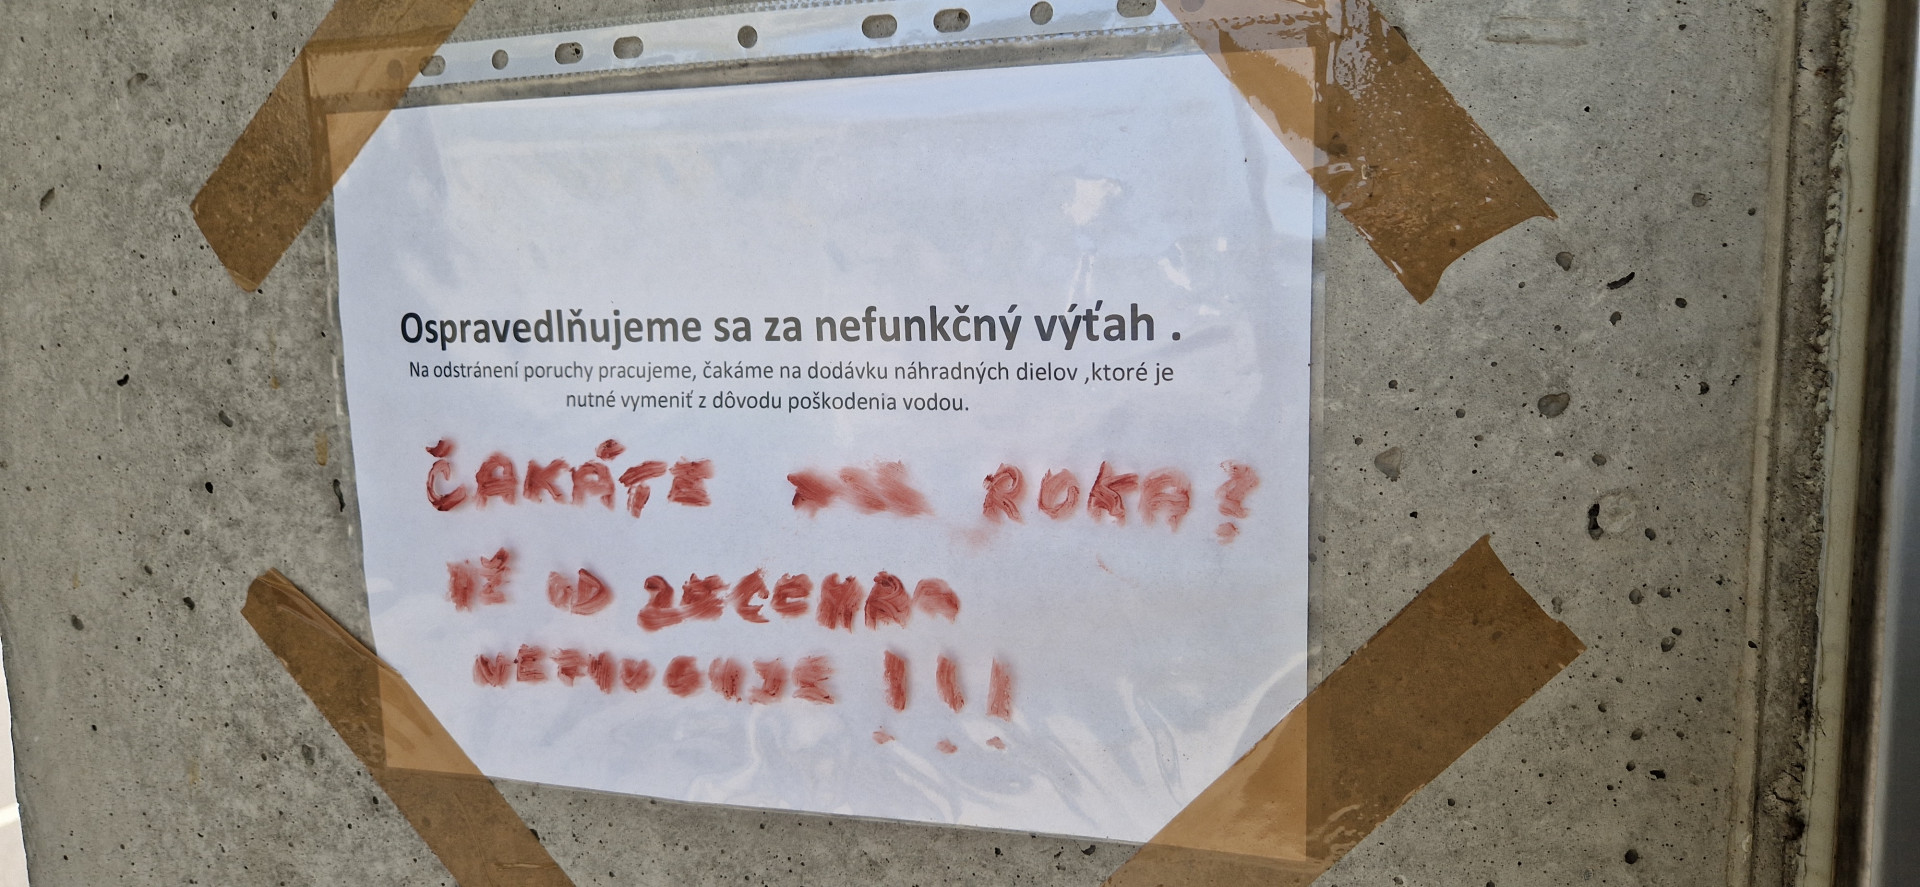 Ospravedlňujeme sa za nefunkčný výťah .
Na odstránení poruchy pracujeme, čakáme na dodávku náhradných dielov ,ktoré je
nutné vymeniť z dôvodu poškodenia vodou.
ČAKÁTE ROKA?
UŽ OD DECEMBRA
NEFUNGUJE !!!